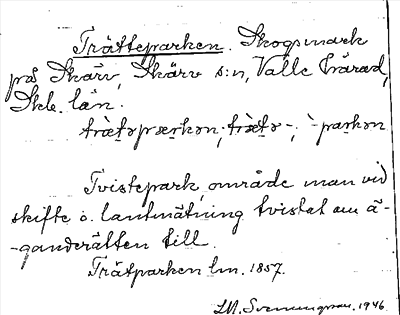 Trätteparken. Skogsmark
på Skärv, Skärv s:n, Valle härad,
Skb. län.
trætəpærkən; trætə-; `-parkən
Tvistepark, område man vid
skifte o. lantmätning tvistat om ä-
-ganderätten till.
Trätparken lm. 1857.
Svenungsson. 1946